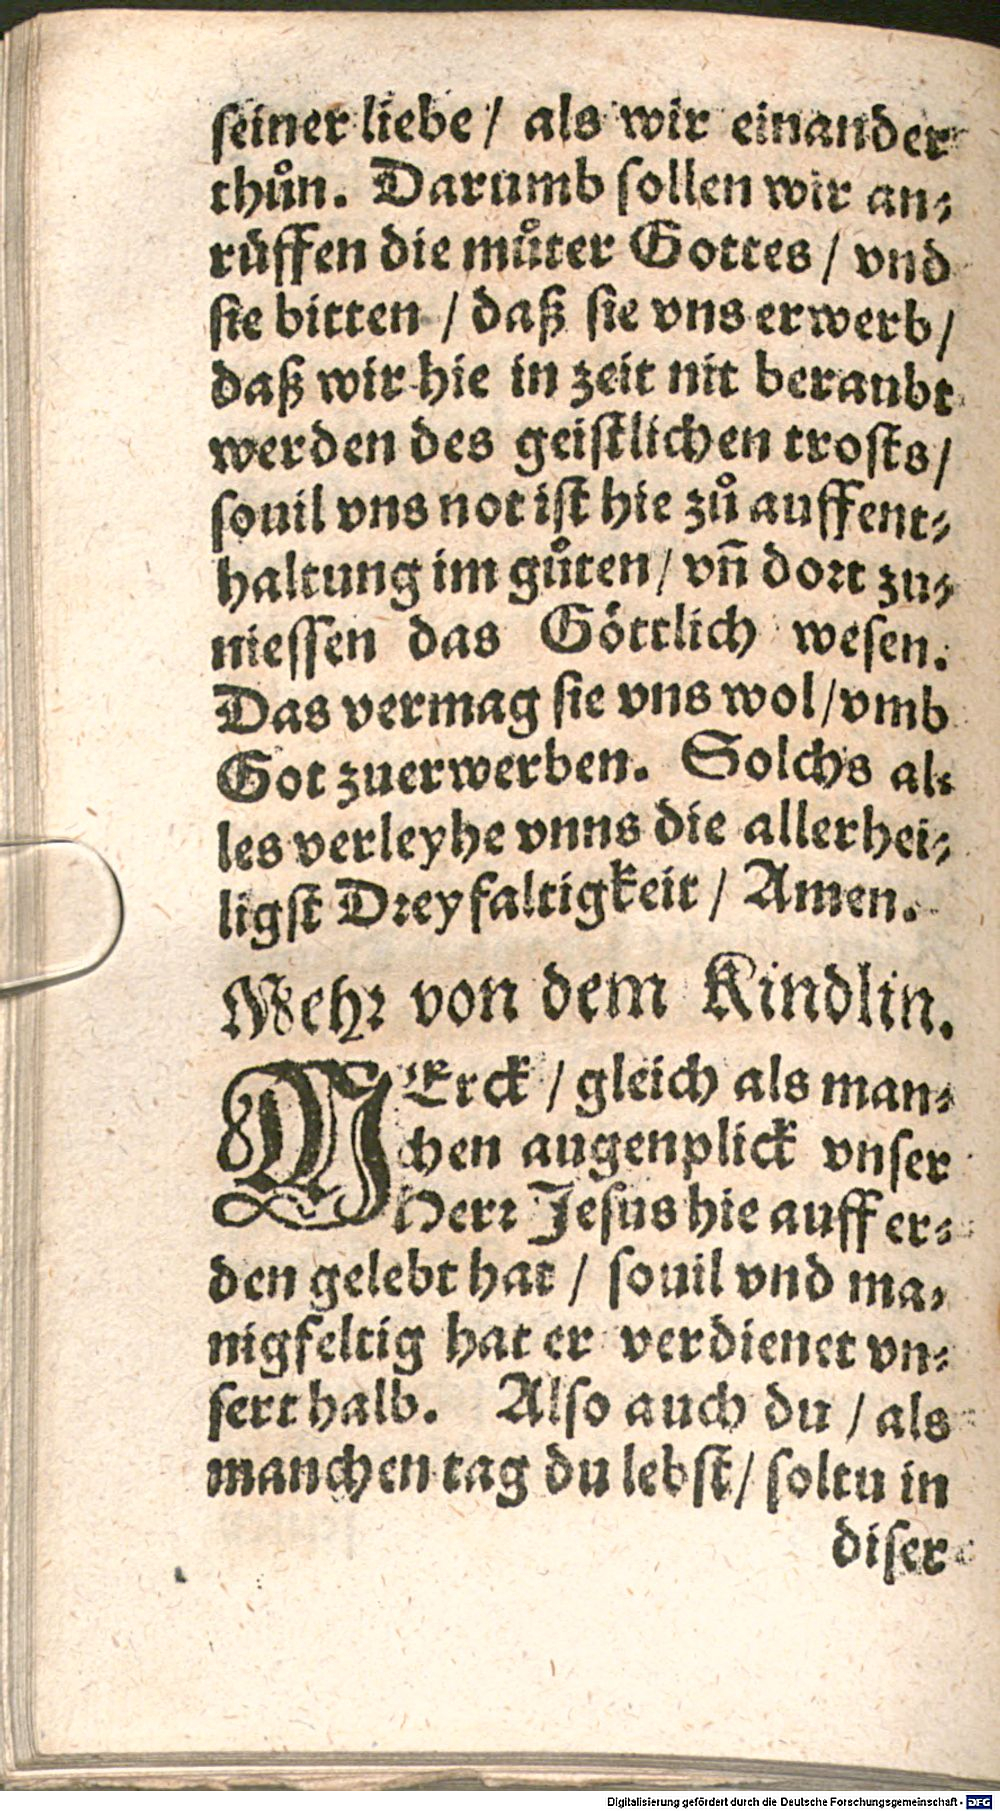 seiner liebe / als wir einander
thůn. Darumb sollen wir an⸗
rüffen die můter Gottes / vnd
sie bitten / daß sie vns erwerb /
daß wir hie in zeit nit beraubt
werden des geistlichen trosts /
souil vns not ist hie zů auffent⸗
haltung im gůten / vñ dort zu⸗
niessen das Göttlich wesen.
Das vermag sie vns wol / vmb
Got zuerwerben. Solchs al⸗
les verleyhe vnns die allerhei⸗
ligst Dreyfaltigkeit / Amen.
Mehr von dem Kindlin.
MErck / gleich als man⸗
chen augenplick vnser
Herr Jesus hie auff er⸗
den gelebt hat / souil vnd ma⸗
nigfeltig hat er verdienet vn⸗
sert halb. Also auch du / als
manchen tag du lebst / soltu in
diser
Digitalisierung gefördert durch die Deutsche Forschungsgemeinschaft - DFG